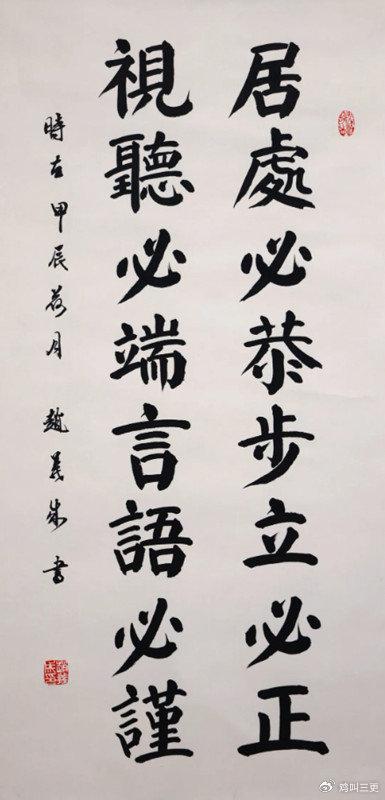 居處必恭步立必正
視聽必端言語必謹
時在甲辰荷月 趙義成書
鸡叫三更